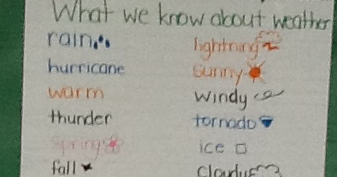 What we know about weather
rain
hurricane
warm
thunder
spring
fall
lightning
sunny
windy
tornado
ice
cloudy